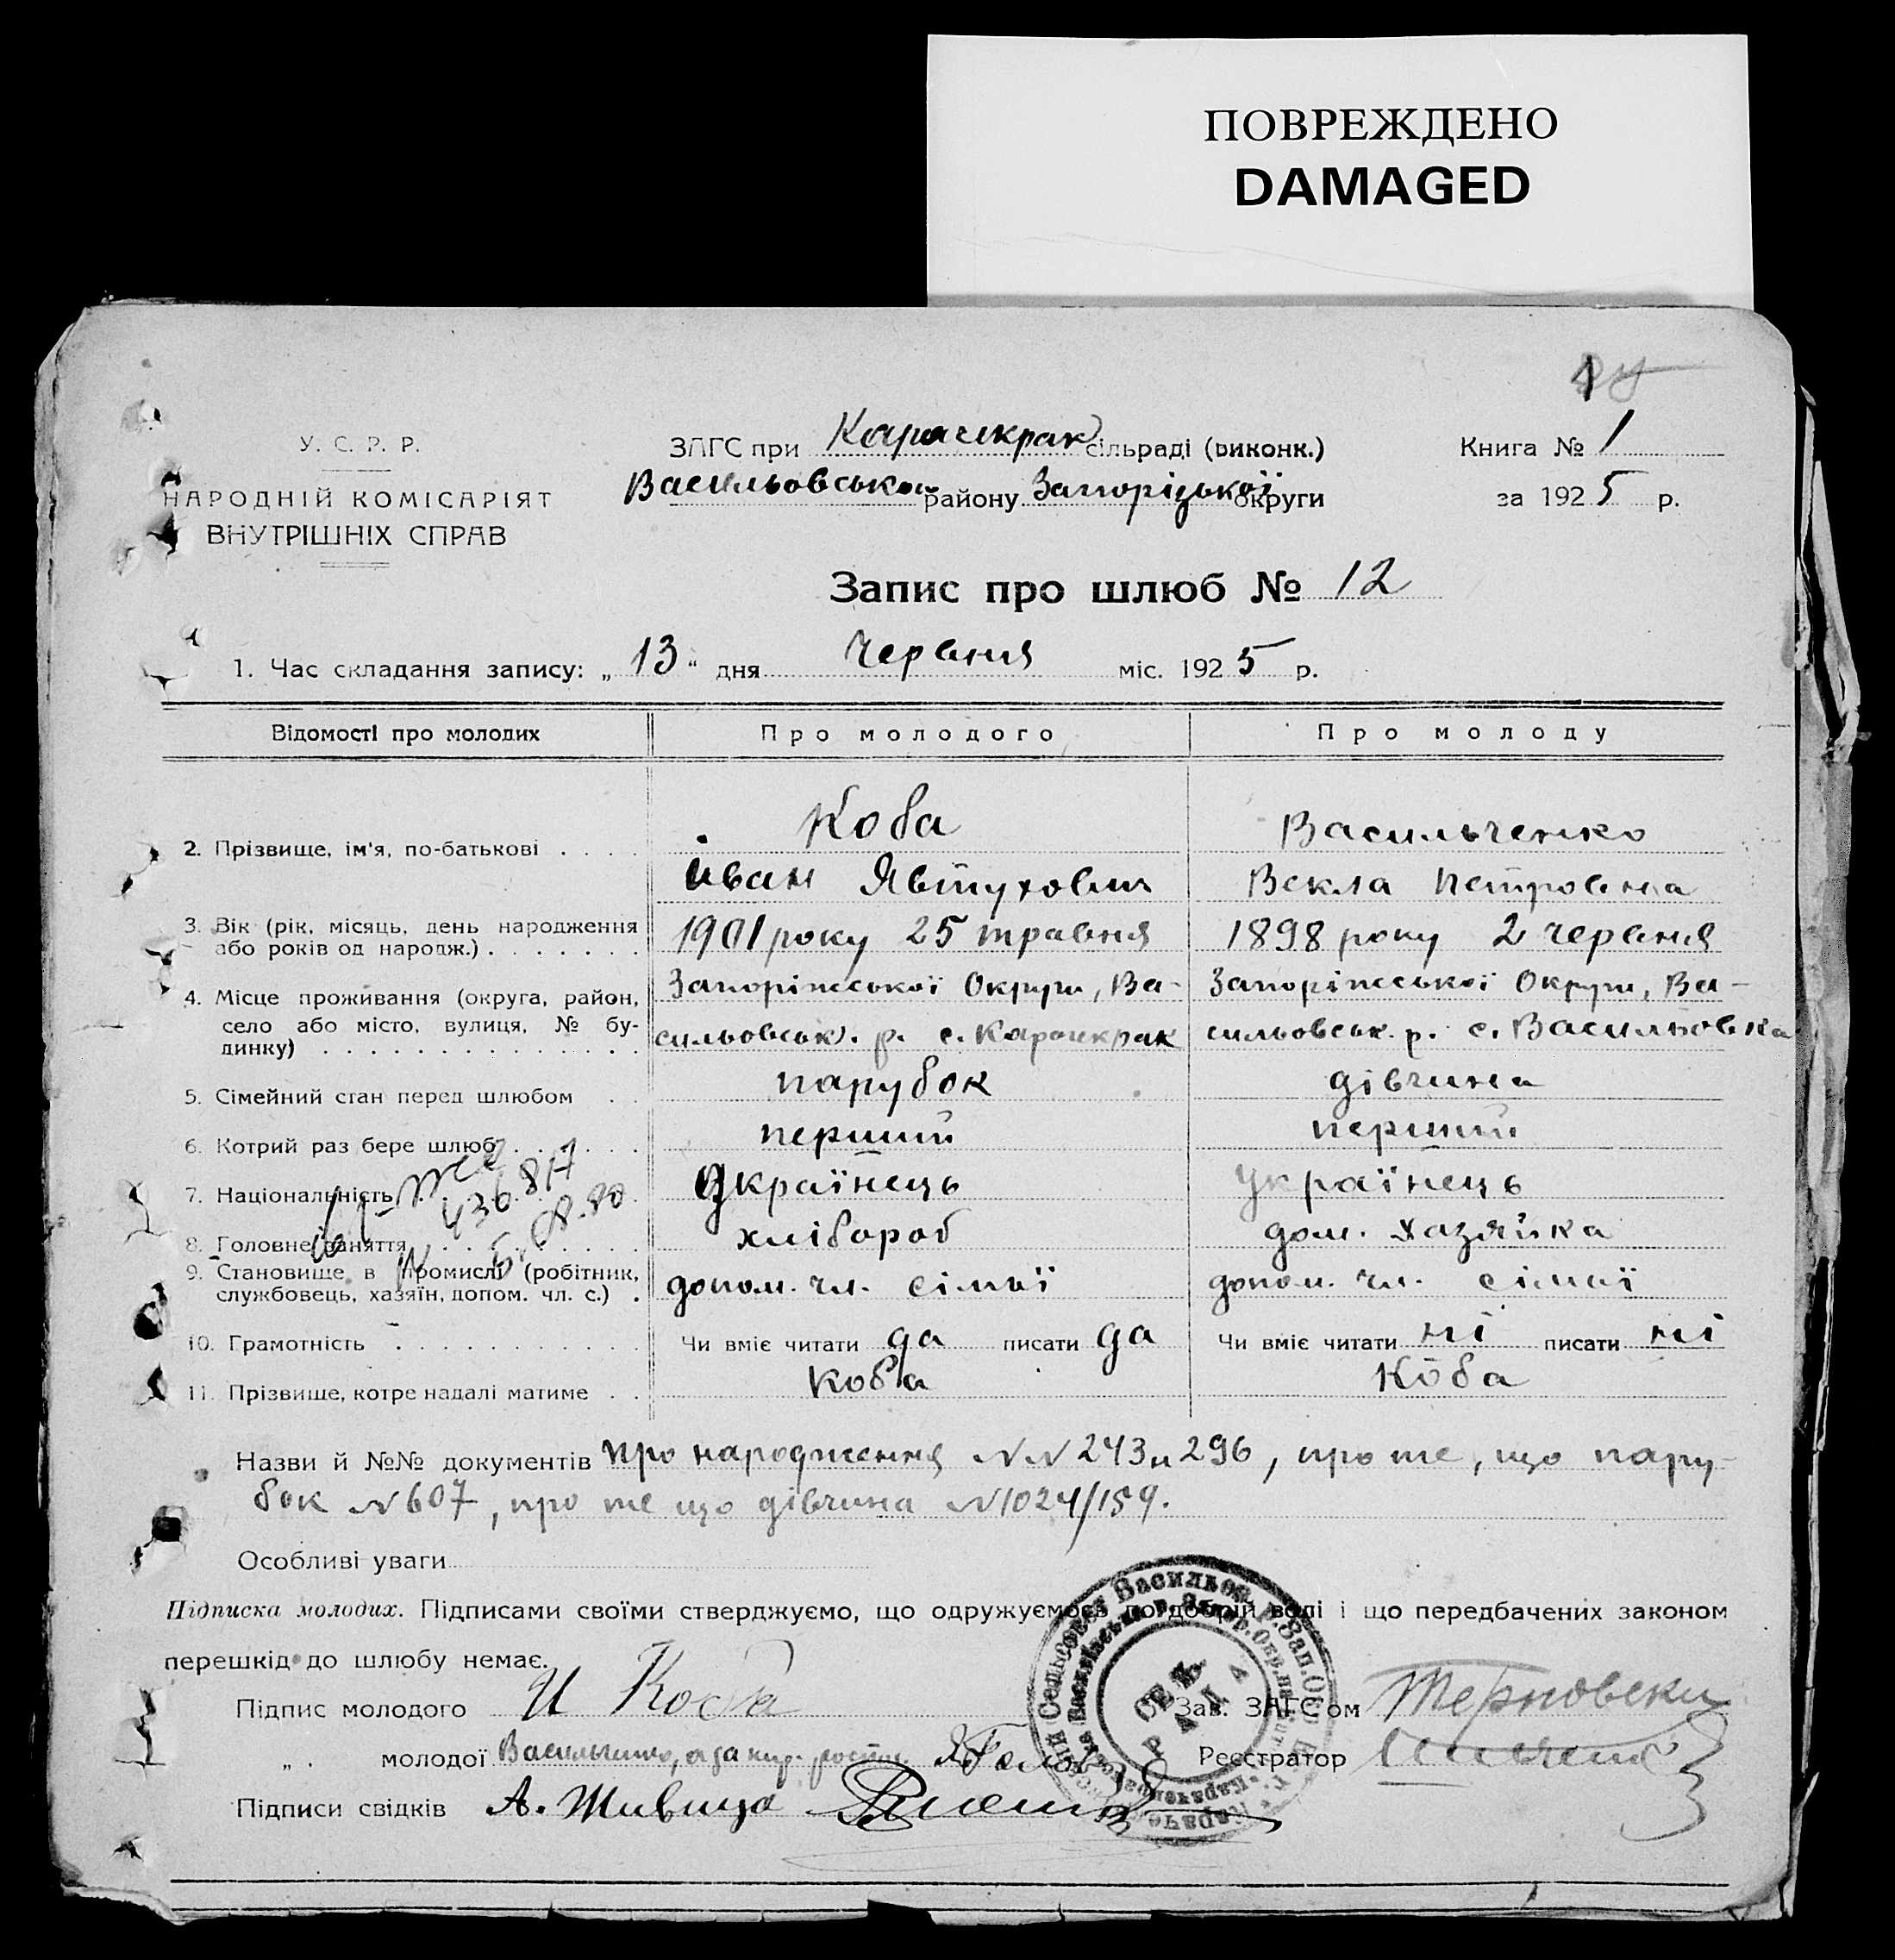 ПОВРЕЖДЕНО
DAMAGED
1
У. С. Р. Р.
НАРОДНІЙ КОМІСАРІЯТ
ВНУТРІШНІХ СПРАВ
ЗАГС при Карачекрак сільраді (виконк.)
Васильовської району Запоріцької округи
Книга № 1
за 1925 р.
Запис про шлюб № 12
1. Час складання запису: „13“ дня Червня міс. 1925 р.
Відомості про молодих Про молодого Про молоду
2. Прізвище, ім'я, по-батькові . . . . Коба Васильченко
Іван Явтухович Векла Петровна
3. Вік (рік, місяць, день народження 1901 року 25 травня 1898 року 2 червня
або років од народж.) . . . . . . .
4. Місце проживання (округа, район, Запоріжської Округи, Ва- Запоріжської Округи, Ва-
село або місто, вулиця, № бу- сильовськ. р. с. Карачекрак сильовськ. р. с. Васильовка
динку) . . . . . . . . . . . . . .
5. Сімейний стан перед шлюбом . . парубок дівчина
6. Котрий раз бере шлюб . . . . . перший перший
7. Національність Українець Українець
436817
8. Головне заняття . . . . . . . . . хлібороб дом. хазяйка
9. Становище в промислі (робітник, допом. чл. сімьї допом. чл. сімьї
службовець, хазяїн, допом. чл. с.) .
10. Грамотність . . . . . . . . . . . Чи вміє читати да писати да Чи вміє читати ні писати ні
11. Прізвище, котре надалі матиме . . Коба Коба
Назви й №№ документів про народження NN 243 и 296, про те, що пару-
бок N 607, про те що дівчина N1024/159.
Особливі уваги
Підписка молодих. Підписами своїми стверджуємо, що одружуємось по добрій волі і що передбачених законом
перешкід до шлюбу немає.
Підпис молодого И Коба Зав. ЗАГС'ом Терновски
„ . молодої Васильченко, а за нир. роспис. Реєстратор
Підписи свідків А. Живица